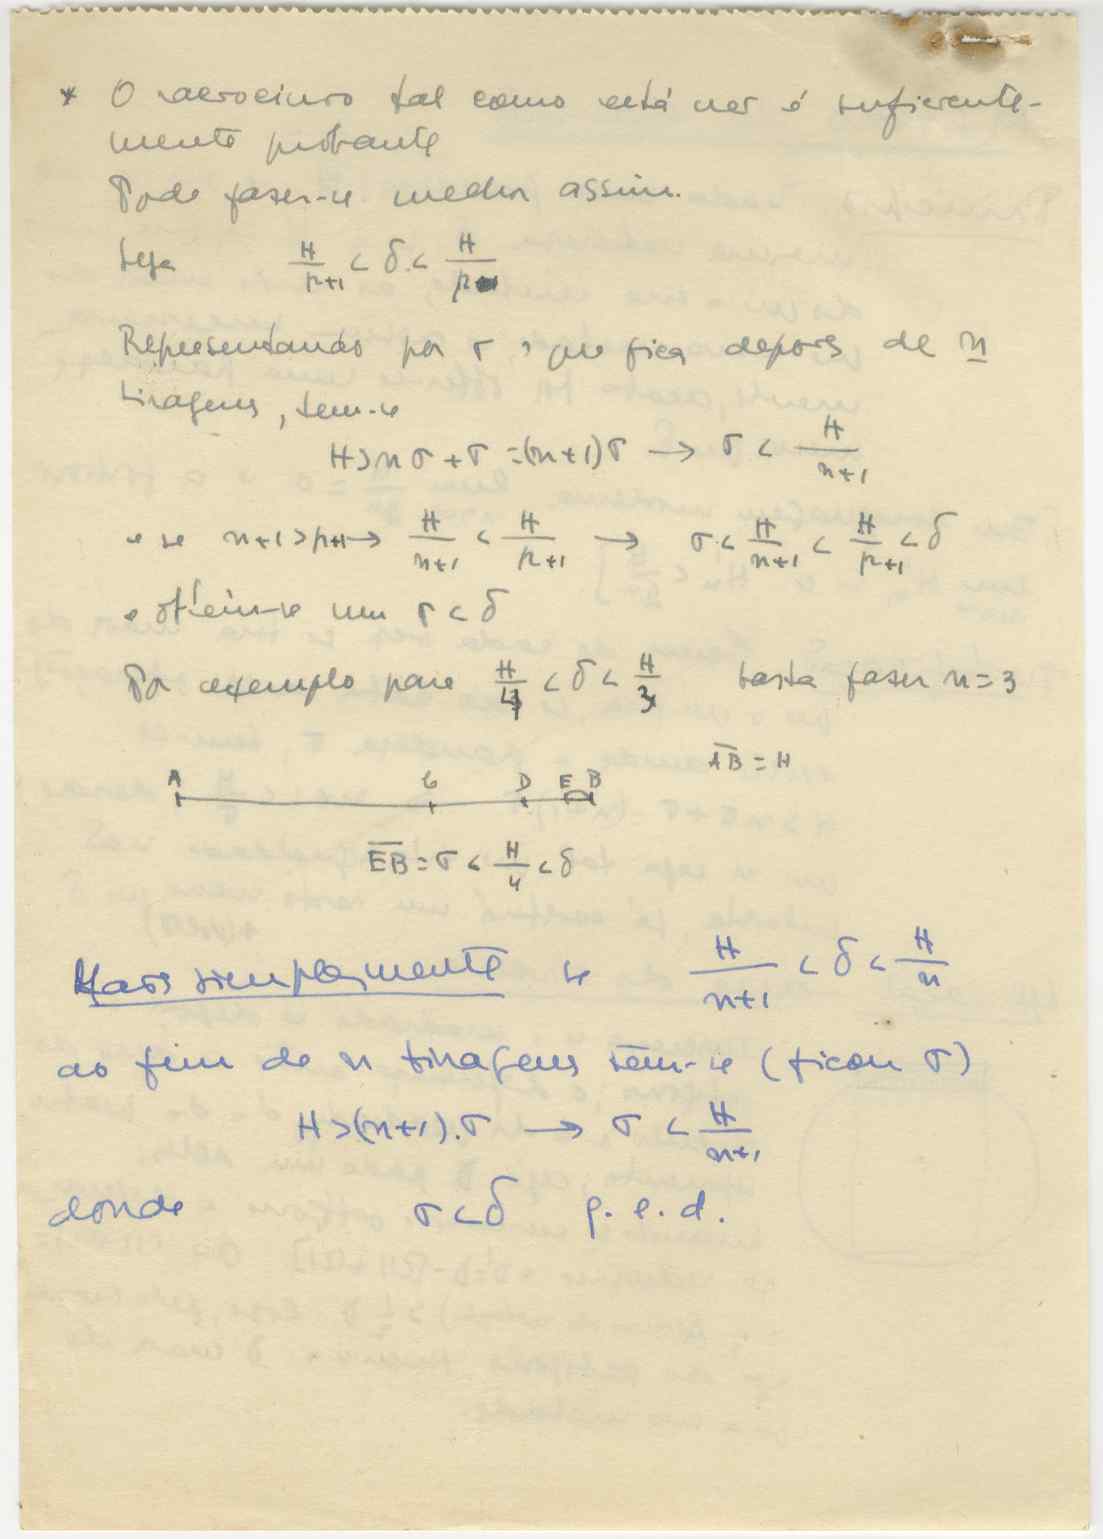 * O raciocínio tal como está não é suficiente-
mente probante
Pode fazer-se melhor assim.
Seja H/(p+1) < δ < H/p
Representando por σ o que fica depois de n
tiragens, tem-se
H > nσ + σ = (n+1)σ → σ < H/(n+1)
e se n+1 > p+1 → H/(n+1) < H/(p+1) → σ < H/(n+1) < H/(p+1) < δ
e obtém-se um σ < δ
Por exemplo para H/4 < δ < H/3 basta fazer n = 3
AB = H
A C D E B
EB = σ < H/4 < δ
Mais simplesmente se H/(n+1) < δ < H/n
ao fim de n tiragens tem-se (ficou σ)
H > (n+1).σ → σ < H/(n+1)
donde σ < δ q. e. d.